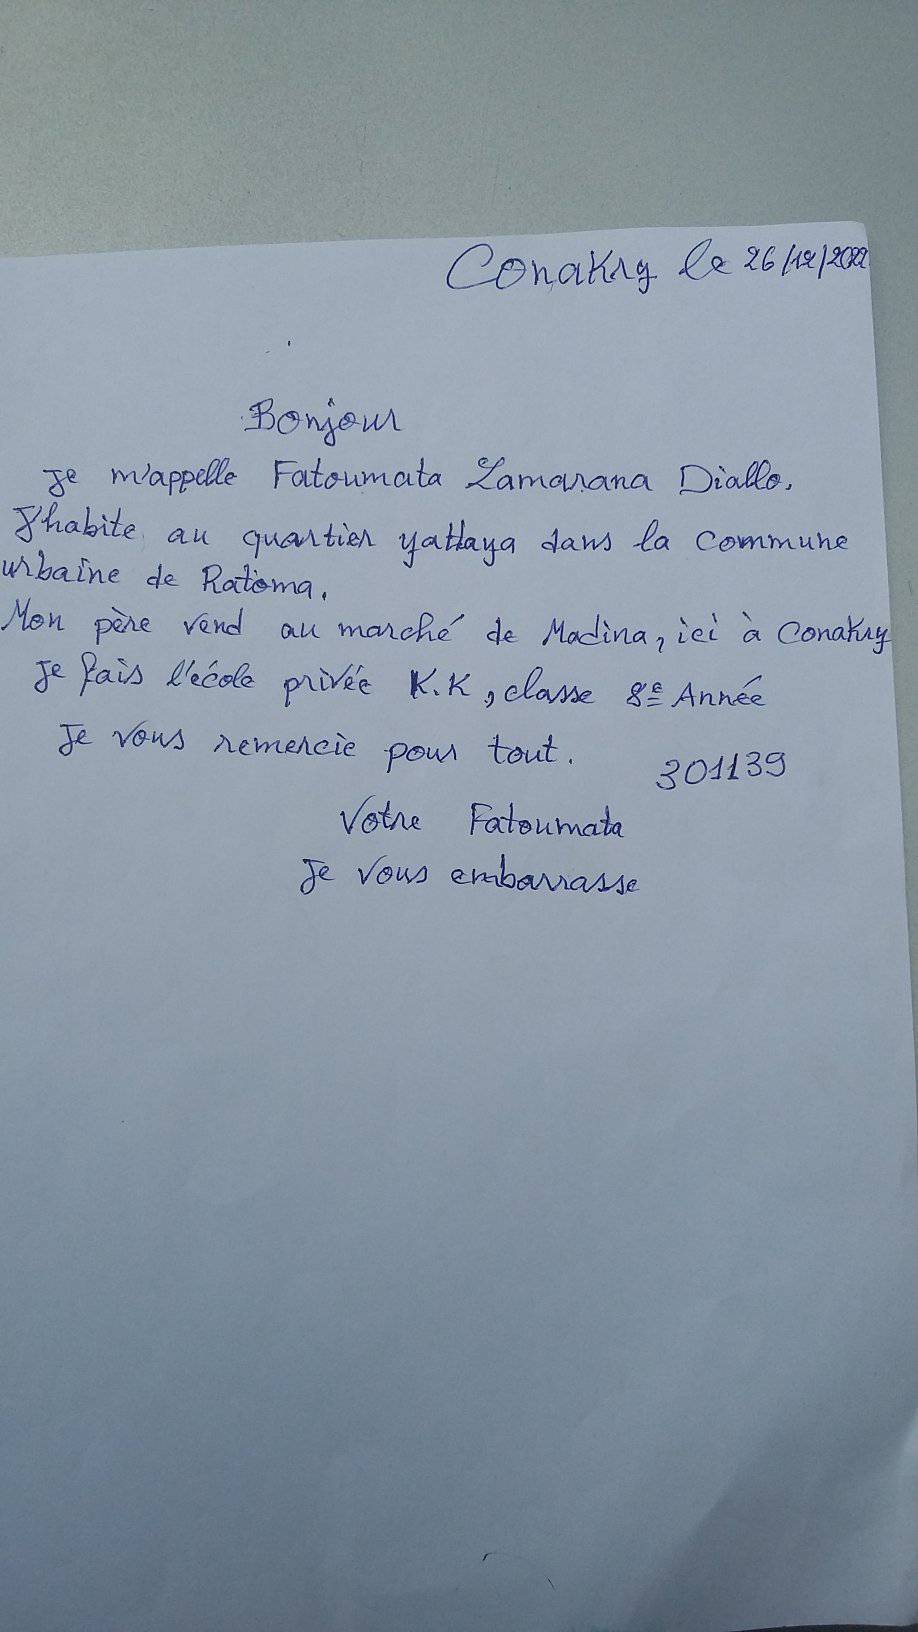 Conakry le 26/12/2022
Bonjour
Je m'appelle Fatoumata Zamarana Diallo.
J'habite au quartier yattaya dans la commune
urbaine de Ratoma.
Mon père vend au marché de Madina, ici à Conakry
Je fais l'école privée K.K, classe 8e Année
Je vous remercie pour tout.
301139
Votre Fatoumata
Je vous embarrasse